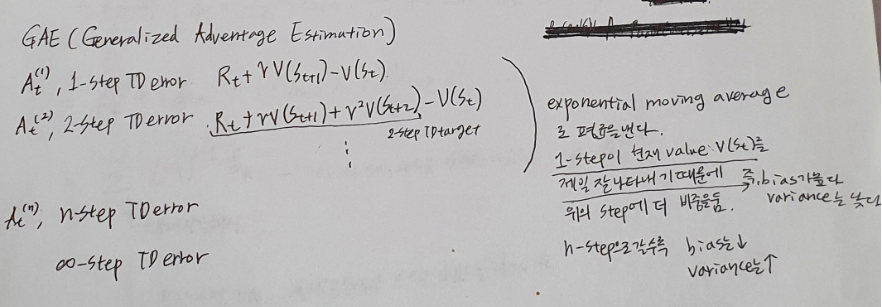 GAE (Generalized Adventage Estimation)
A_t^(1), 1-step TD error R_t + γV(S_t+1) - V(S_t)
A_t^(2), 2-step TD error R_t + γV(S_t+1) + γ²V(S_t+2) - V(S_t)
2-step TD target
⋮
A_t^(n), n-step TD error
∞-step TD error
exponential moving average
로 평균을 낸다.
1-step이 현재 value V(S_t)를
제일 잘 나타내기 때문에 즉, bias가 높다
variance는 낮다
위의 step에 더 비중을 둠.
n-step으로 갈수록 bias는↓
variance는↑